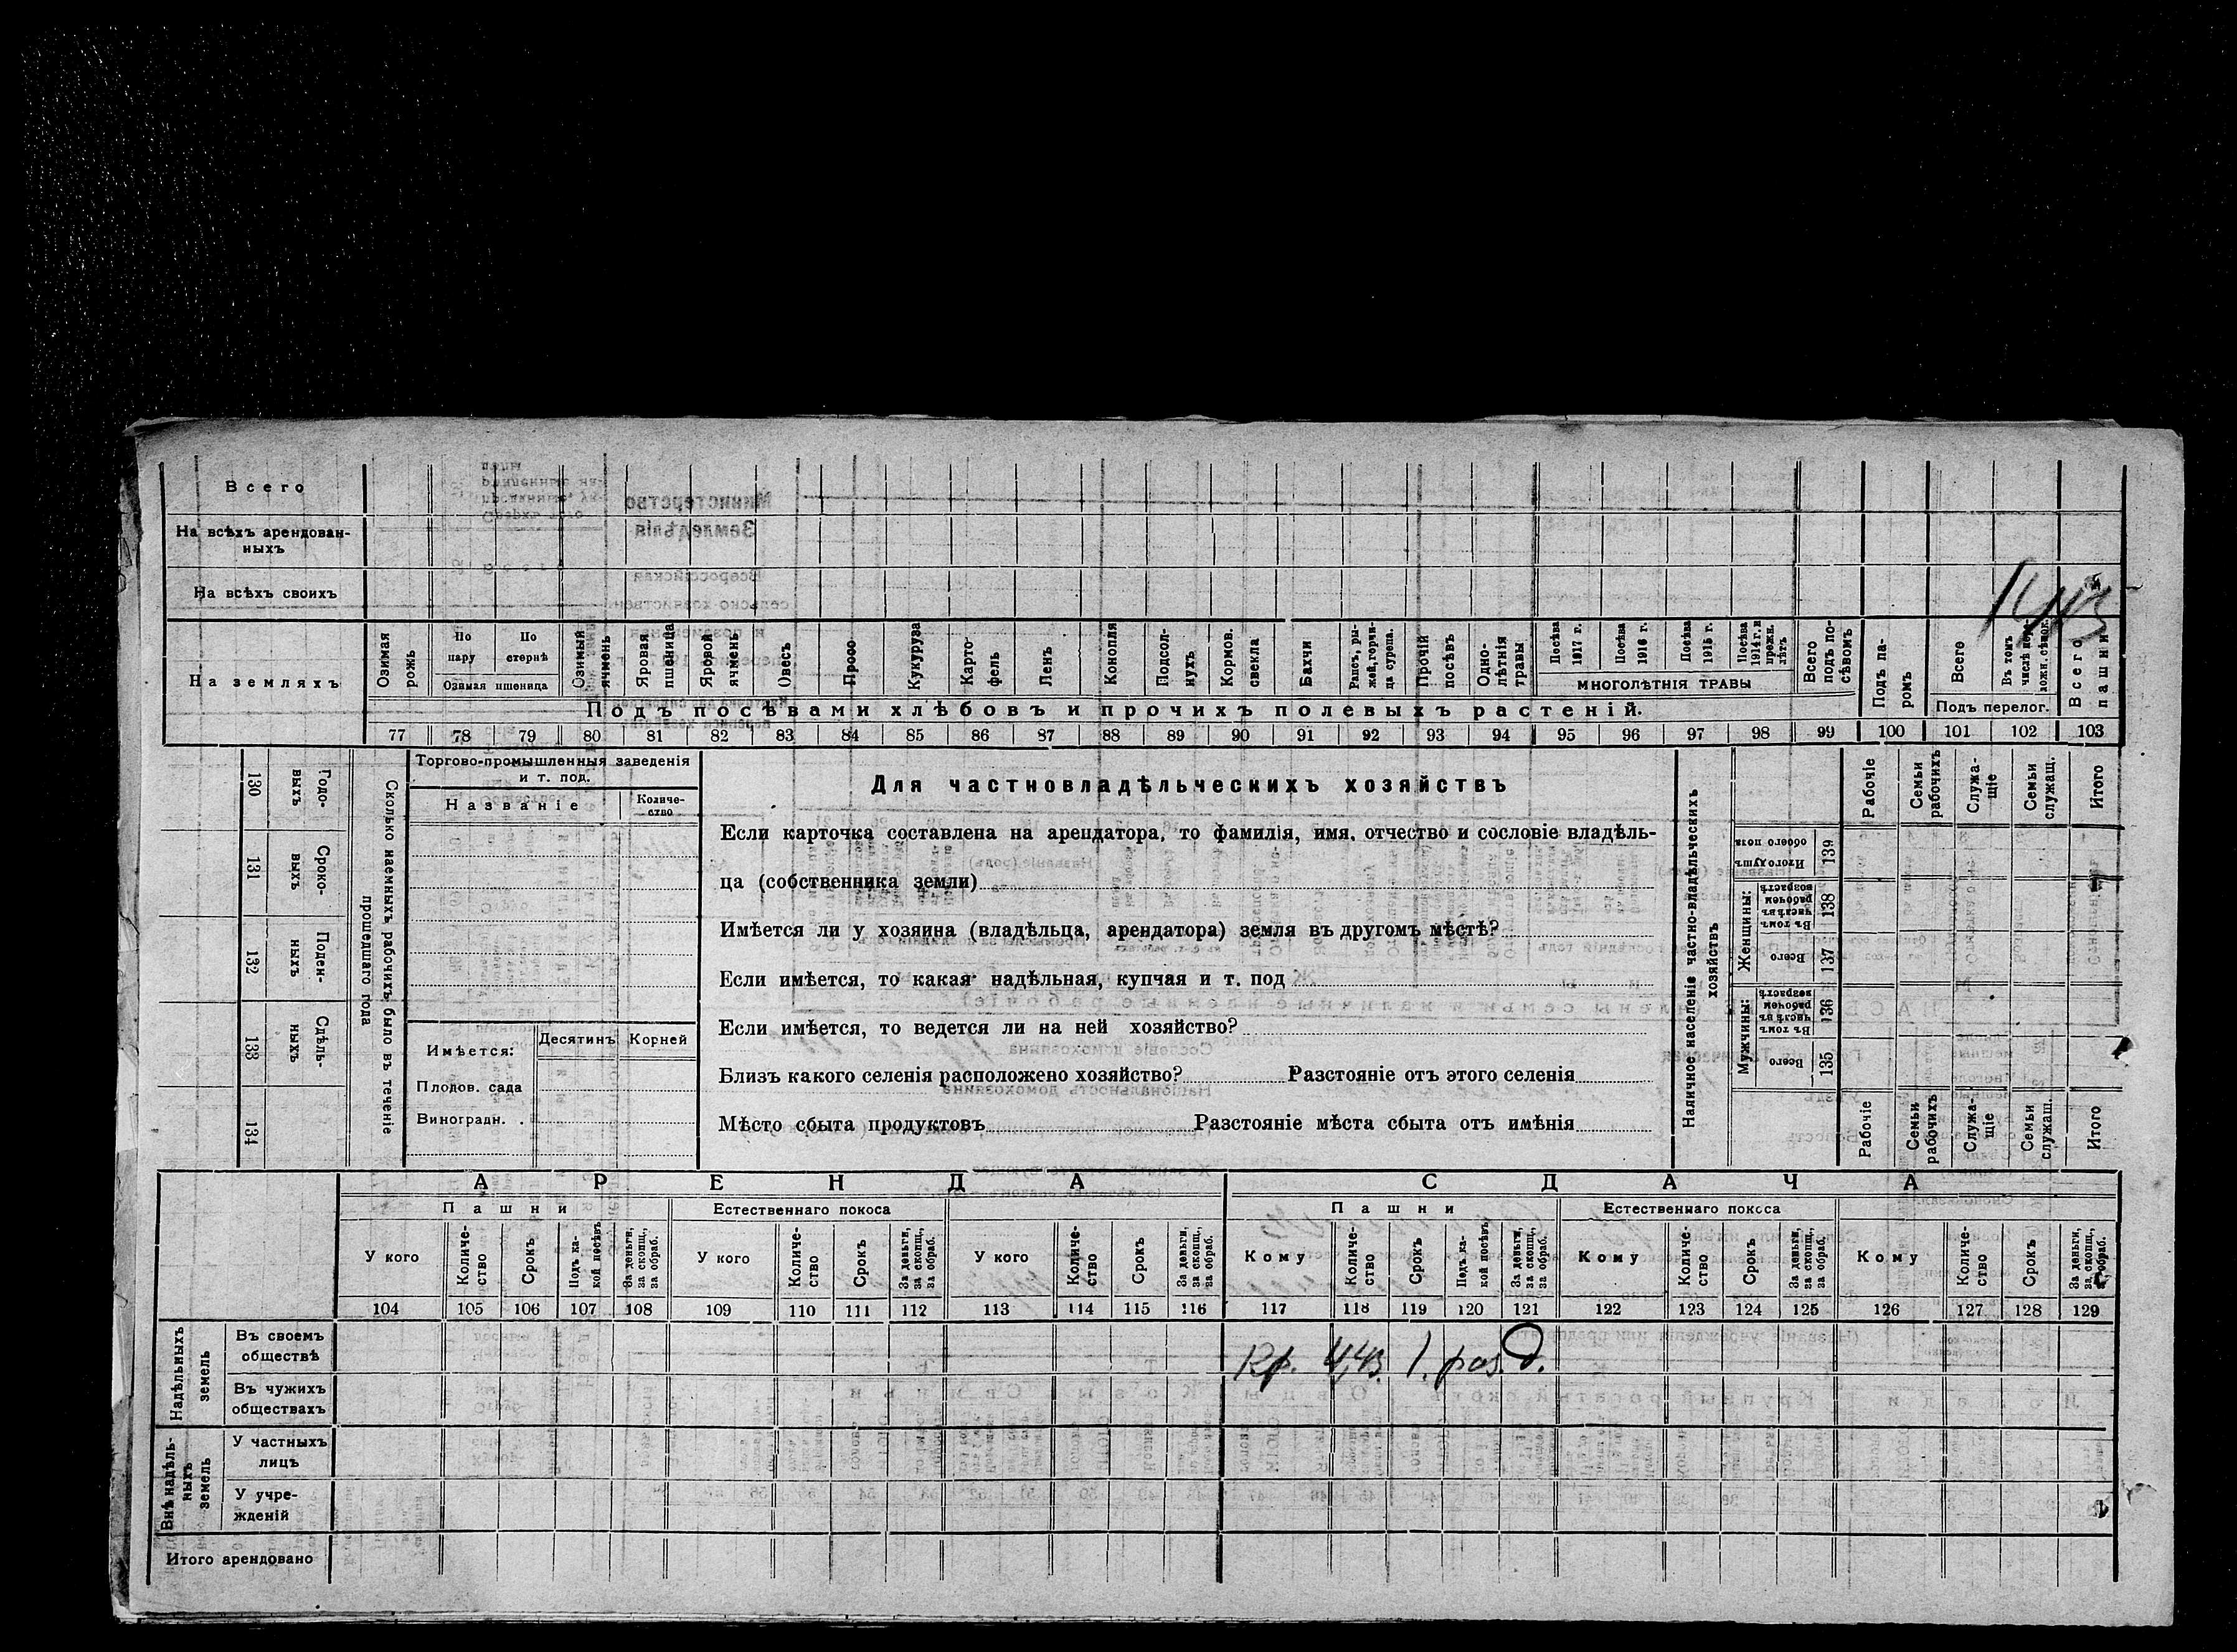 Всего
На всѣхъ арендован-
ныхъ
На всѣхъ своихъ
На земляхъ
Озимая рожь
По пару
По стернѣ
Озимая пшеница
Озимый ячмень
Яровая пшеница
Яровой ячмень
Овесъ
Просо
Кукуруза
Карто-
фель
Ленъ
Конопля
Подсол-
нухъ
Кормов. свекла
Бахчи
Рапсъ, ры-
жей, горчи-
ца сурепа.
Прочій посѣвъ
Одно-
лѣтнія травы
Посѣва 1917 г.
Посѣва 1916 г.
Посѣва 1915 г.
Посѣва 1914 г. и прежн. лѣтъ
МНОГОЛѢТНІЯ ТРАВЫ
Всего подъ по-
сѣвомъ
Подъ па-
ромъ
Всего
Въ томъ числѣ
Подъ перелог.
Всего пашни
Подъ посѣвами хлѣбовъ и прочихъ полевыхъ растеній.
77 78 79 80 81 82 83 84 85 86 87 88 89 90 91 92 93 94 95 96 97 98 99 100 101 102 103
130 Годо-
выхъ
131 Сроко-
выхъ
132 Поден-
ныхъ
133 Сдѣль-
ныхъ
134
Сколько наемныхъ рабочихъ было въ теченіе
прошедшаго года
Торгово-промышленныя заведенія
и т. под.
Названіе
Количе-
ство
Имѣется:
Десятинъ
Корней
Плодов. сада
Виноградн. .
Для частновладѣльческихъ хозяйствъ
Если карточка составлена на арендатора, то фамилія, имя, отчество и сословіе владѣль-
ца (собственника земли)
Имѣется ли у хозяина (владѣльца, арендатора) земля въ другомъ мѣстѣ?
Если имѣется, то какая надѣльная, купчая и т. под
Если имѣется, то ведется ли на ней хозяйство?
Близъ какого селенія расположено хозяйство? Разстояніе отъ этого селенія
Мѣсто сбыта продуктовъ Разстояніе мѣста сбыта отъ имѣнія
Наличное населеніе частно-владѣльческихъ
хозяйствъ
Мужчины:
Всего 135
Въ томъ числѣ въ рабочемъ возрастѣ 136
Женщины:
Всего 137
Въ томъ числѣ въ рабочемъ возрастѣ 138
Итого душъ обоего пола 139
Рабочіе
Семьи рабочихъ
Служа-
щіе
Семьи служащ.
Итого
Рабочіе
Семьи рабочихъ
Служа-
щіе
Семьи служащ.
Итого
АРЕНДА
СДАЧА
Пашни
Естественнаго покоса
Пашни
Естественнаго покоса
У кого
Количе-
ство
Срокъ
Подъ ка-
кой посѣвъ
За деньги, за скопщ., за обраб.
У кого
Количе-
ство
Срокъ
За деньги, за скопщ., за обраб.
У кого
Количе-
ство
Срокъ
За деньги, за скопщ., за обраб.
Кому
Количе-
ство
Срокъ
Подъ ка-
кой посѣвъ
За деньги, за скопщ., за обраб.
Кому
Количе-
ство
Срокъ
За деньги, за скопщ., за обраб.
Кому
Количе-
ство
Срокъ
За деньги, за скопщ., за обраб.
104 105 106 107 108 109 110 111 112 113 114 115 116 117 118 119 120 121 122 123 124 125 126 127 128 129
Надѣльныхъ
земель
Въ своемъ
обществѣ
Кр. 4,43. 1. раз. д.
Въ чужихъ
обществахъ
Внѣ надѣль-
ныхъ
земель
У частныхъ
лицъ
У учре-
жденій
Итого арендовано